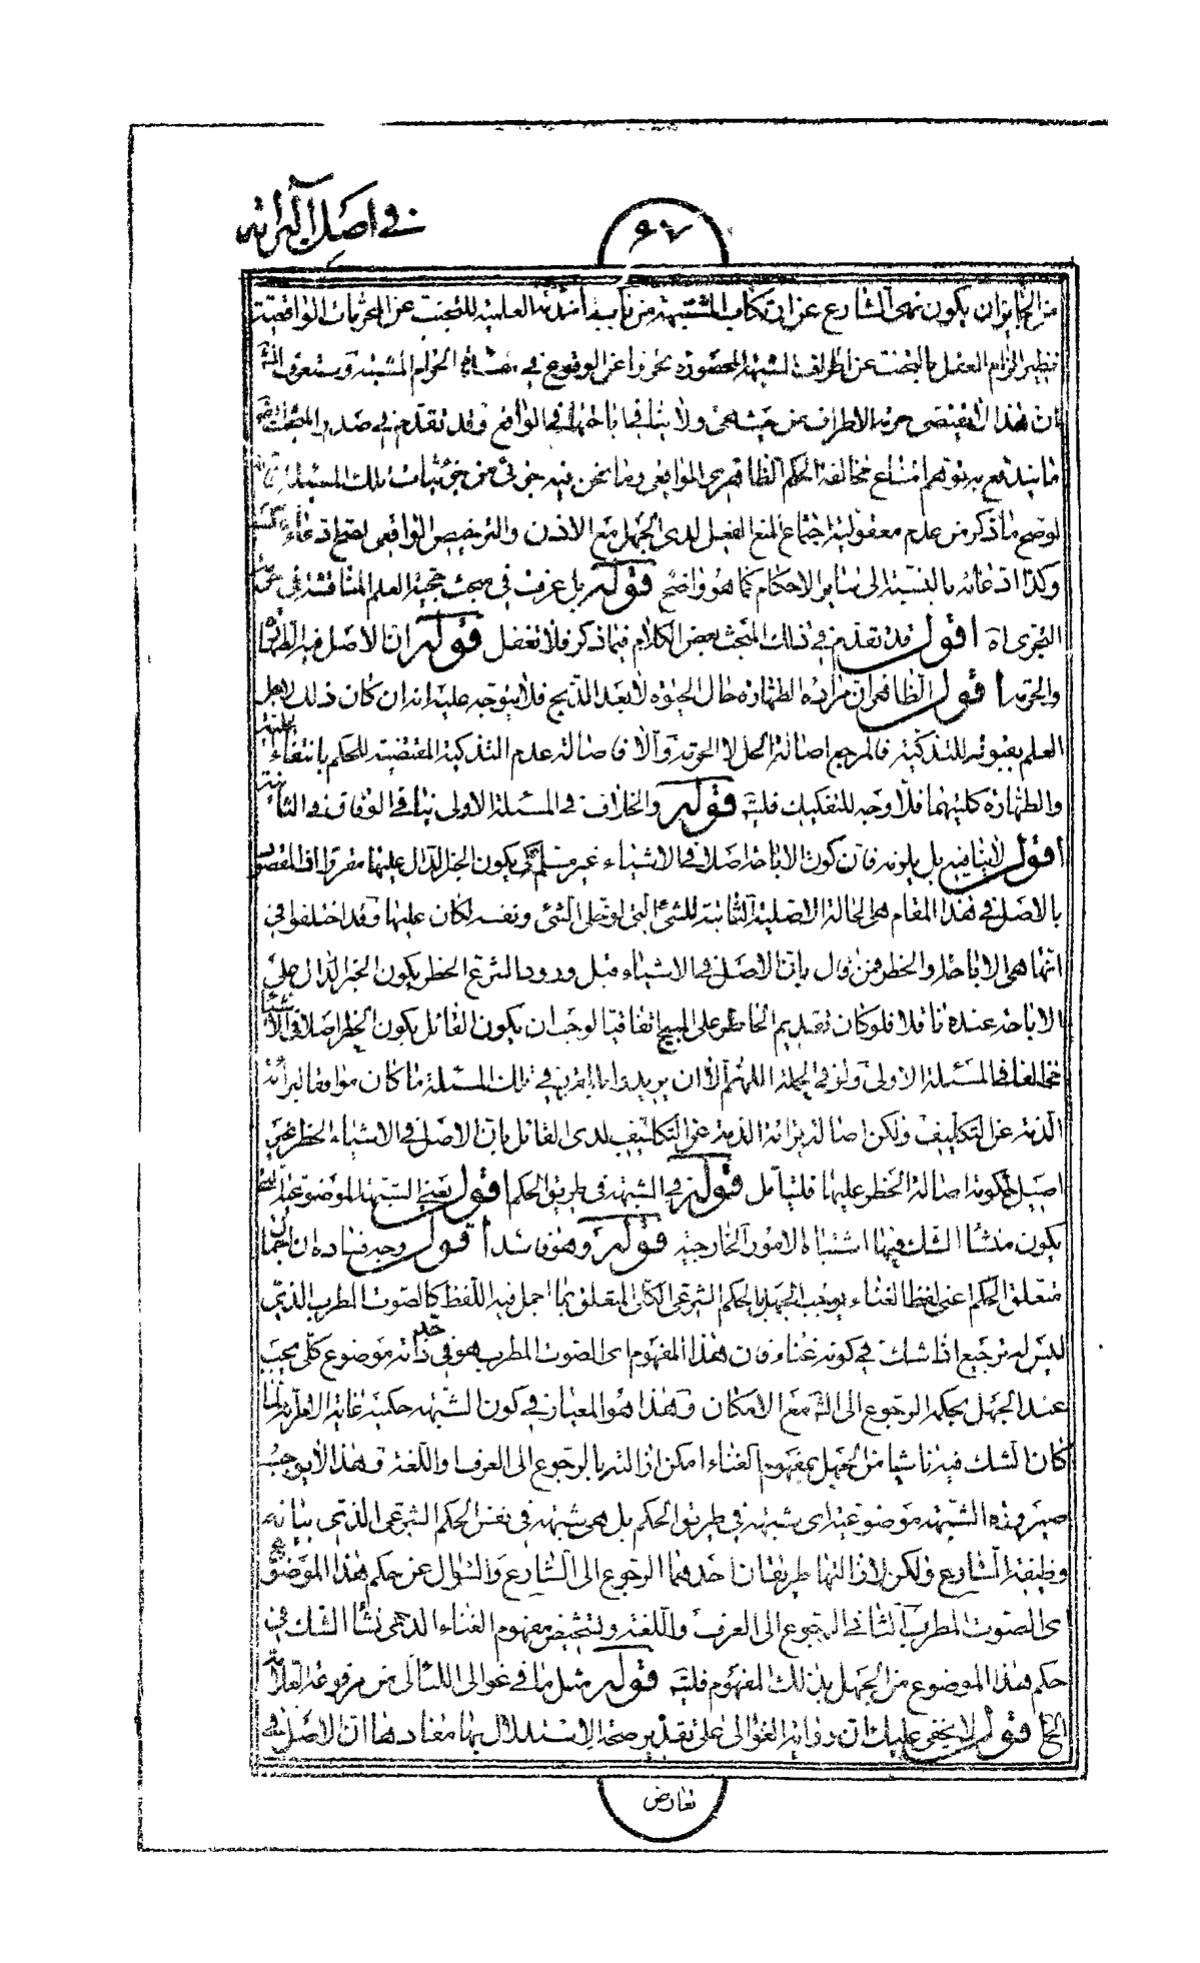 في اصل البرائة
٩٧
من الجايز ان يكون نهى الشارع عن ارتكاب المشتبه من باب المقدمة العلمية للتجنب عن المحرمات الواقعية
نظير الزام العقل بالتجنب عن اطراف الشبهة المحصورة تحرزا عن الوقوع في مفسدة الحرام المشتبه وستعرف انش
ان هذا لا يقتضى حرمة الاطراف من حيث هى ولا ينافى اباحتها فى الواقع وقد تقدم في صدر المبحث
ما يندفع به توهم امتناع مخالفة الحكم الظاهرى للواقعى وما نحن فيه جزئى من جزئيات تلك المسئلة
لوضح ما ذكر من عدم معقولية اجتماع المنع الفعلى لدى الجهل مع الاذن والترخيص الواقعى لصح ادعاء
وكذا ادعائه بالنسبة الى ساير الاحكام كما هو واضح قوله بل عرفت في مبحث حجية العلم المناقشة في حرمة
التجرى اه اقول قد تقدم في ذلك المبحث بعض الكلام فيما ذكر فلا تغفل قوله ان الاصل فيه الطهارة
والحرمة اقول الظاهر ان مراده الطهارة حال الحيوة لا بعد الذبح فلا يتوجه عليه انه ان كان ذلك لاجل
العلم بقبوله للتذكية فالمرجع اصالة الحل لا الحرمة والا فاصالة عدم التذكية المقتضية للحكم بانتفاء الحلية
والطهارة كليتهما فلا وجه للتفكيك فليتـ قوله والخلاف فى المسئلة الاولى ينافى الوفاق فى الثانية
اقول لا ينافيه بل يلزمه فان كون الاباحة اصلا فى الاشياء غير مسلم كى يكون الخبر الدال عليها مقررا اذ المقصود
بالاصل في هذا المقام هى الحالة الاصلية الثابتة للشئ التى لو خلى الشئ ونفسه لكان عليها وقد اختلفوا في
انها هى الاباحة والخطر فمن قال بان الاصل فى الاشياء قبل ورود الشرع الحظر يكون الخبر الدال على
الاباحة عنده ناقلا فلو كان تقديم الحاظر على المبيح اتفاقيا لوجب ان يكون القائل بكون الحظر اصلا فى الاشياء
مخالفا فى المسئلة الاولى ولو فى الجملة اللهم الا ان يريدوا بالمقرر في تلك المسئلة ما كان موافقا لبرائة
الذمة عن التكليف ولكن اصالة برائة الذمة عن التكاليف لدى القائل بان الاصل فى الاشياء الحظر غير
اصيل لحكومة اصالة الحظر عليها فليتامل قوله فى الشبهة في طريق الحكم اقول يعنى الشبهة الموضوعية التى
يكون منشأ الشك فيها اشتباه الامور الخارجية قوله وهو فاسد اقول وجه فساده ان اجمال
متعلق الحكم اعنى لفظ الغناء يوجب الجهل بالحكم الشرعى الكلى المتعلق بما اجمل فيه اللفظ كالصوت المطرب الذى
ليس له ترجيع اذا شك في كونه غناء فان هذا المفهوم اى الصوت المطرب هو في حد ذاته موضوع كلى يجب
عند الجهل بحكمه الرجوع الى الشـ مع الامكان وهذا هو المعيار في كون الشبهة حكمية غاية الامر انه لما
كان الشك فيه ناشيا من الجهل بمفهوم الغناء امكن ازالته بالرجوع الى العرف واللغة وهذا لا يوجب
صيرورة الشبهة موضوعية اى شبهة في طريق الحكم بل هى شبهة في نفس الحكم الشرعى الذى بيانه
وظيفة الشارع ولكن لازالتها طريقان احدهما الرجوع الى الشارع والسؤال عن حكم هذا الموضوع
اى الصوت المطرب الثانى الرجوع الى العرف واللغة وتشخيص مفهوم الغناء الذى نشأ الشك في
حكم هذا الموضوع من الجهل بذلك المفهوم فليتـ قوله مثل ما في غوالى اللئالى من مرفوعة العلامة
الخ اقول لا يخفى عليك ان رواية الغوالى على تقدير صحة الاستدلال بها مفادها ان الاصل في
تعارض